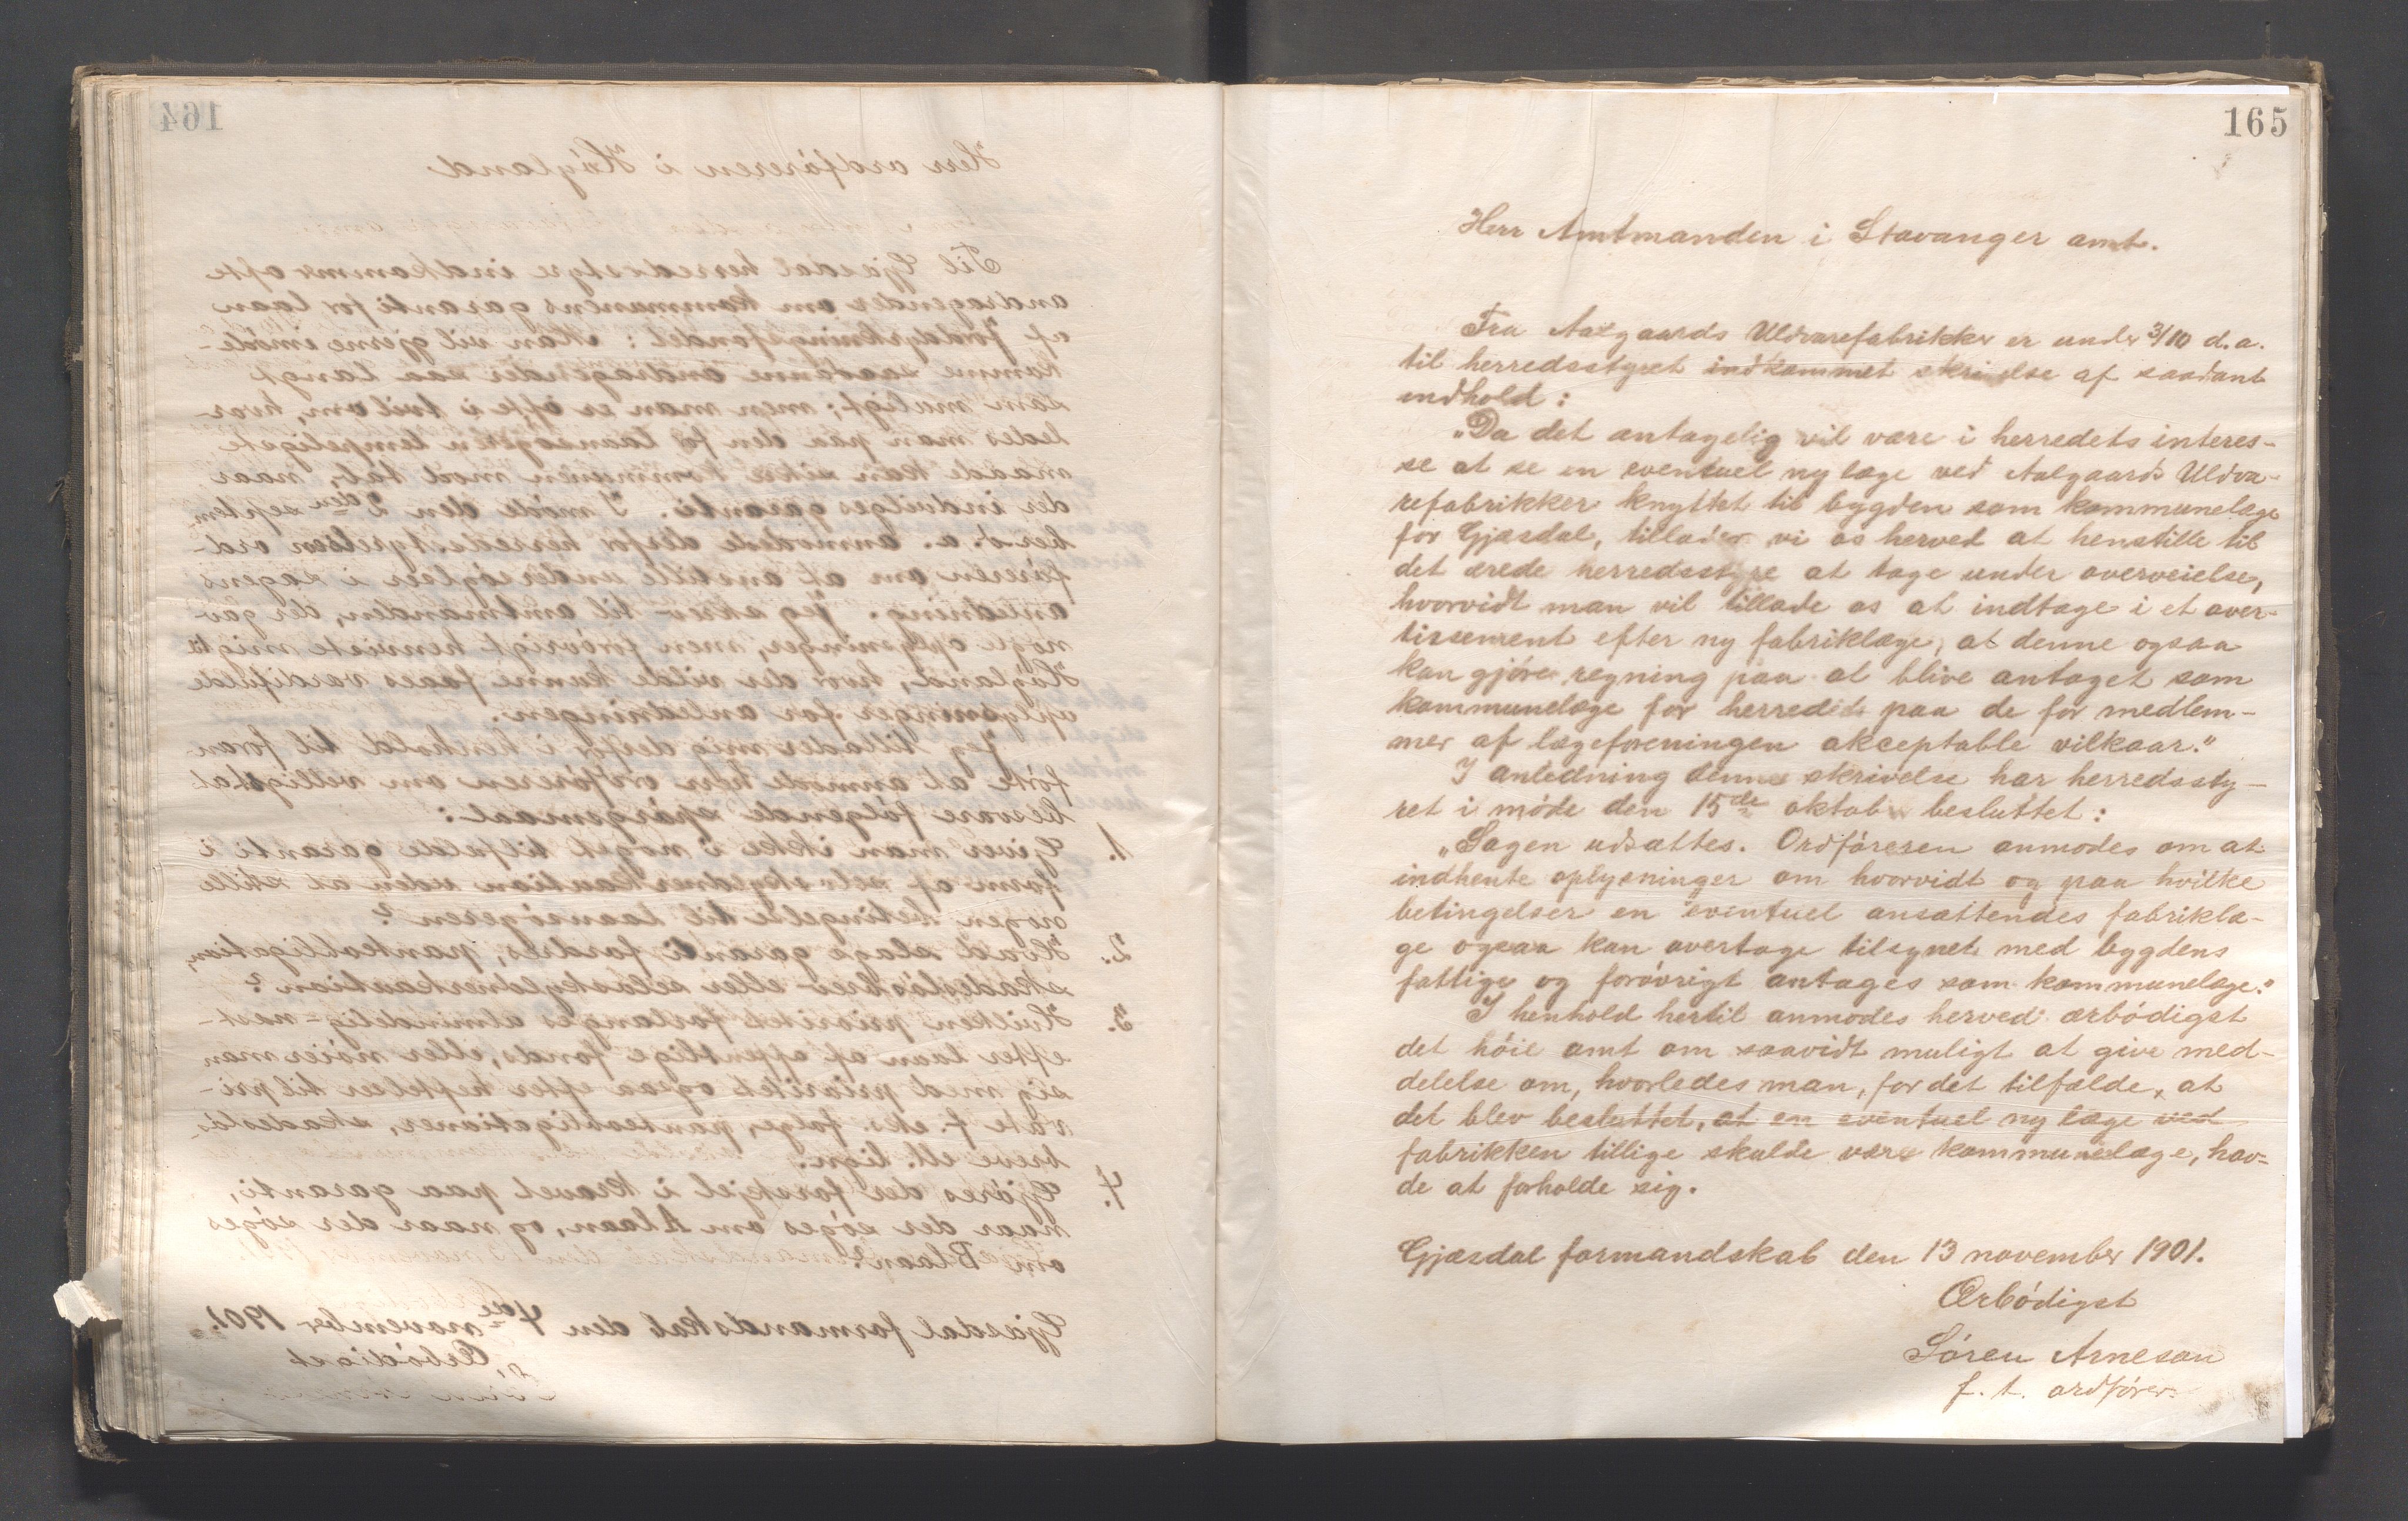 164
Herr ordføreren i Høyland
Til Gjæsdal herredsstyre indkommer ofte
andragender om kommunens garanti for laan
af jorddyrkningsfondet: Man vil gjerne imøde-
komme saadanne andragender saa langt
som muligt; men man er ofte i tvil om, hvor-
ledes man paa den for laansøgeren lempeligste
maade kan sikre kommunen mod tab, naar
der indvilges garanti. I møde den 2den septem
ber d. a. anmodede derfor herredsstyrelsen ord-
føreren om at anstille undersøgelser i sagens
anledning. Jeg skrev til amtmanden, der gav
nogle oplysninger, men forøvrigt henviste mig til
Høyland, hvor der vilde kunne faaes værdifulde
oplysninger for anledningen.
Jeg tillader mig derfor i henhold til foran
førte at anmode herr ordføreren om velligst at
besvare følgende spørgsmaal:
1. Giver man ikke i noget tilfælde garanti i
form af selvskyldnerkaution uden at stille
nogen betingelse til laansøgeren?
2. Hvad slags garanti fordres, panteobligation,
skadesløsbrev eller selvskyldnerkaution?
3. Hvilken prioritet forlanges almindelig-næst-
efter laan af offentlige fonds, eller nøier man
sig med prioritet ogsaa efter heftelser til pri-
vate f. eks. følge, panteobligationer, skadesløs-
breve ell. lign.
4. Gjøres der forskjel i kravet paa garanti,
naar der søges om A laan, og naar der søges
om B laan?
Gjæsdal formandskab den 4de november 1901.
Ærbødigst
165
Herr Amtmanden i Stavanger amt.
Fra Aalgaards Uldvarefabrikker er under 3/10 d. a.
til herredsstyret indkommet skrivelse af saadant
indhold:
"Da det antagelig vil være i herredets interes-
se at se en eventuel ny læge ved Aalgaards Uldva-
refabrikker knyttet til bygden som kommunelæge
for Gjæsdal, tillader vi os herved at henstille til
det ærede herredsstyre at tage under overveielse,
hvorvidt man vil tillade os at indtage i et aver-
tissement efter ny fabriklæge, at denne ogsaa
kan gjøre regning paa at blive antaget som
kommunelæge for herredet paa de for medlem-
mer af lægeforeningen akceptable vilkaar."
I anledning denne skrivelse har herredssty-
ret i møde den 15de oktober besluttet:
"Sagen udsættes. Ordføreren anmodes om at
indhente oplysninger om hvorvidt og paa hvilke
betingelser en eventuel ansættendes fabriklæ-
ge ogsaa kan overtage tilsynet med bygdens
fattige og forøvrigt antages som kommunelæge."
I henhold hertil anmodes herved ærbødigst
det høie amt om saavidt muligt at give med-
delelse om, hvorledes man, for det tilfælde, at
det blev besluttet, at en eventuel ny læge ved
fabrikken tillige skulde være kommunelæge, hav-
de at forholde sig.
Gjæsdal formandskab den 13 november 1901.
Ærbødigst
Søren Arneson
f. t. ordfører.